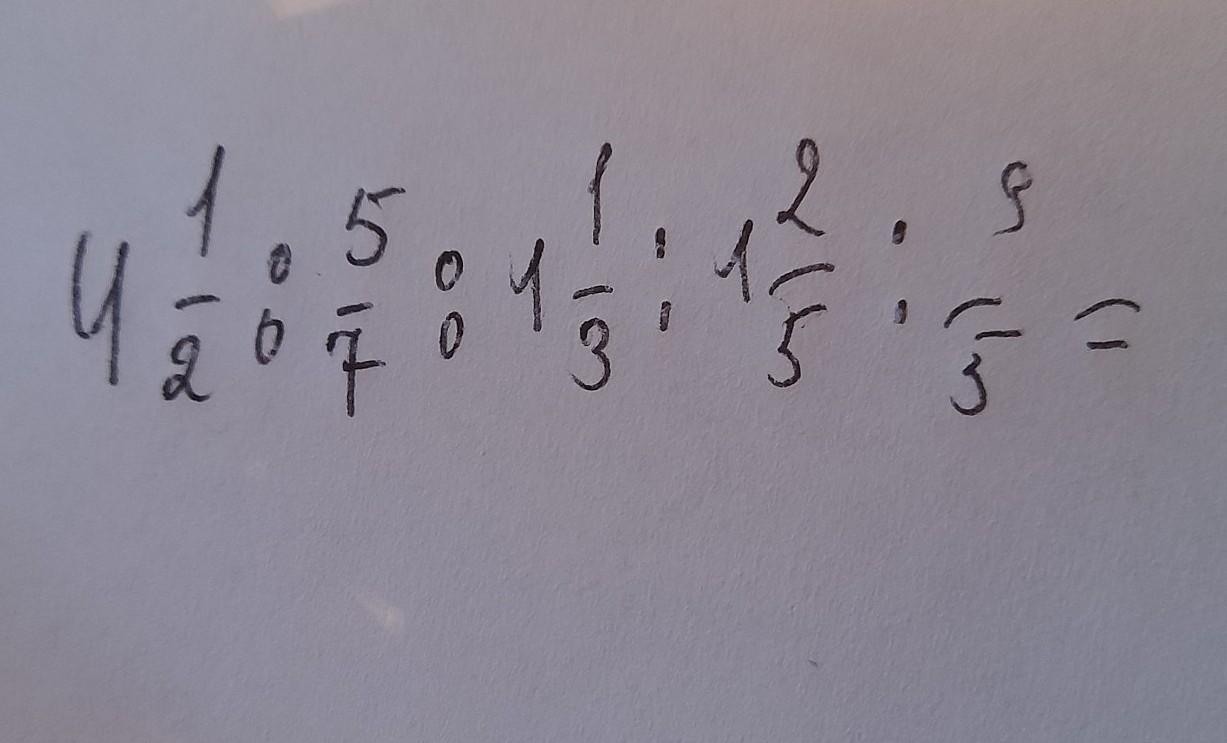 4 1/2 : 5/7 : 1 1/3 : 1 2/5 : 9/5 =